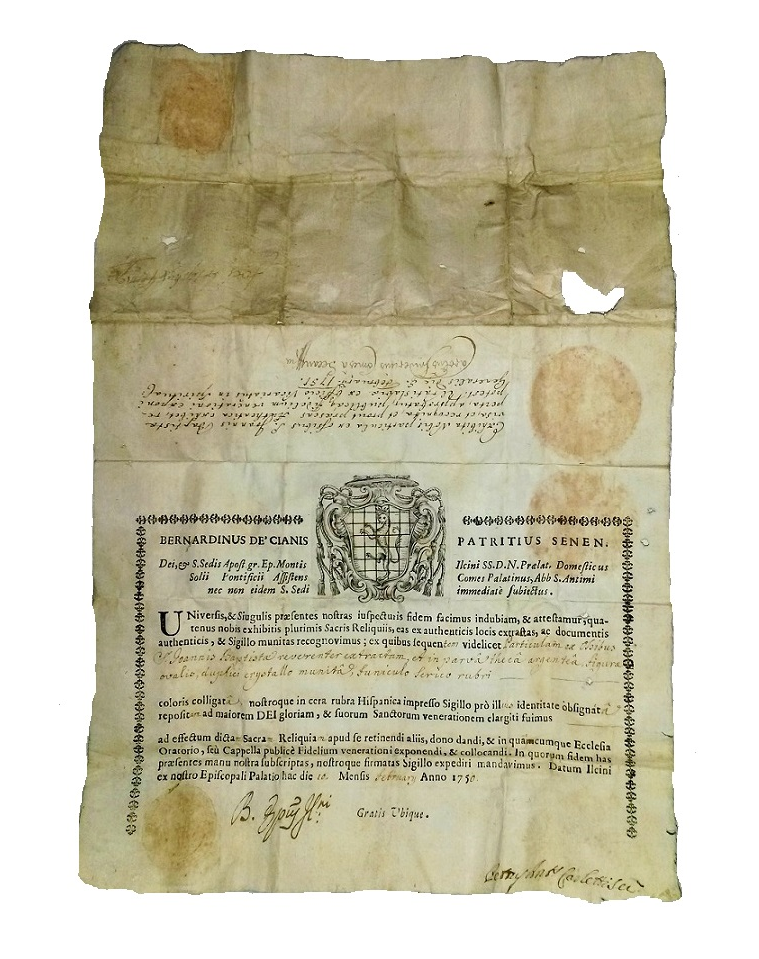 Carolus
Generalis die 5 Februarij 1751.
potest. De in Ecclesia ex Officio
publicae Fidelium venerationi exponi
recognita, et prout praesens Authentica exhibet, re-
Exhibita Nobis particula ex ossibus S. Joannis Baptistae
BERNARDINUS DE' CIANIS PATRITIUS SENEN.
Dei, & S. Sedis Apost gr. Ep. Montis Ilcini SS. D. N. Prælat. Domesticus
Solii Pontificii Assistens Comes Palatinus, Abb S. Antimi
nec non eidem S. Sedi immediatè subiectus.
Universis, & Singulis præsentes nostras inspecturis fidem facimus indubiam, & attestamur, qua-
tenus nobis exhibitis plurimis Sacris Reliquiis, eas ex authenticis locis extractas, ac documentis
authenticis, & Sigillo munitas recognovimus; ex quibus sequentem videlicet Particulam ex Ossibus
S. Joannis Baptistæ reverenter extractam, et in parva theca argentea, figuræ
ovalis, duplici crystallo munitâ, funiculo serico rubri
coloris colligatâ, nostroque in cera rubra Hispanica impresso Sigillo prò illius identitate obsignatâ
reposit ad maiorem DEI gloriam, & suorum Sanctorum venerationem elargiti fuimus
ad effectum dicta Sacra Reliquia apud se retinendi aliis, dono dandi, & in quamcumque Ecclesia
Oratorio, seù Cappella publicè Fidelium venerationi exponendi, & collocandi. In quorum fidem has
præsentes manu nostra subscriptas, nostroque firmatas Sigillo expediri mandavimus. Datum Ilcini
ex nostro Episcopali Palatio hac die 10. Mensis February Anno 1750
B. Epus Ilcni Gratis Ubique.